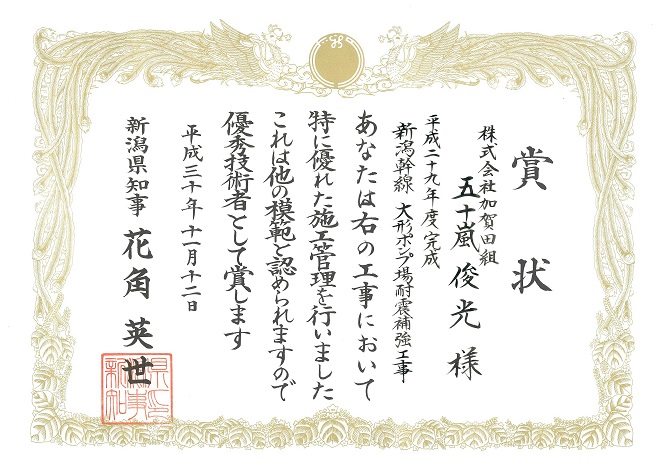 賞状
株式会社加賀田組
五十嵐俊光様
平成二十九年度完成
新潟幹線 大形ポンプ場耐震補強工事
あなたは右の工事において
特に優れた施工管理を行いました
これは他の模範と認められますので
優秀技術者として賞します
平成三十年十一月十二日
新潟県知事 花角英世